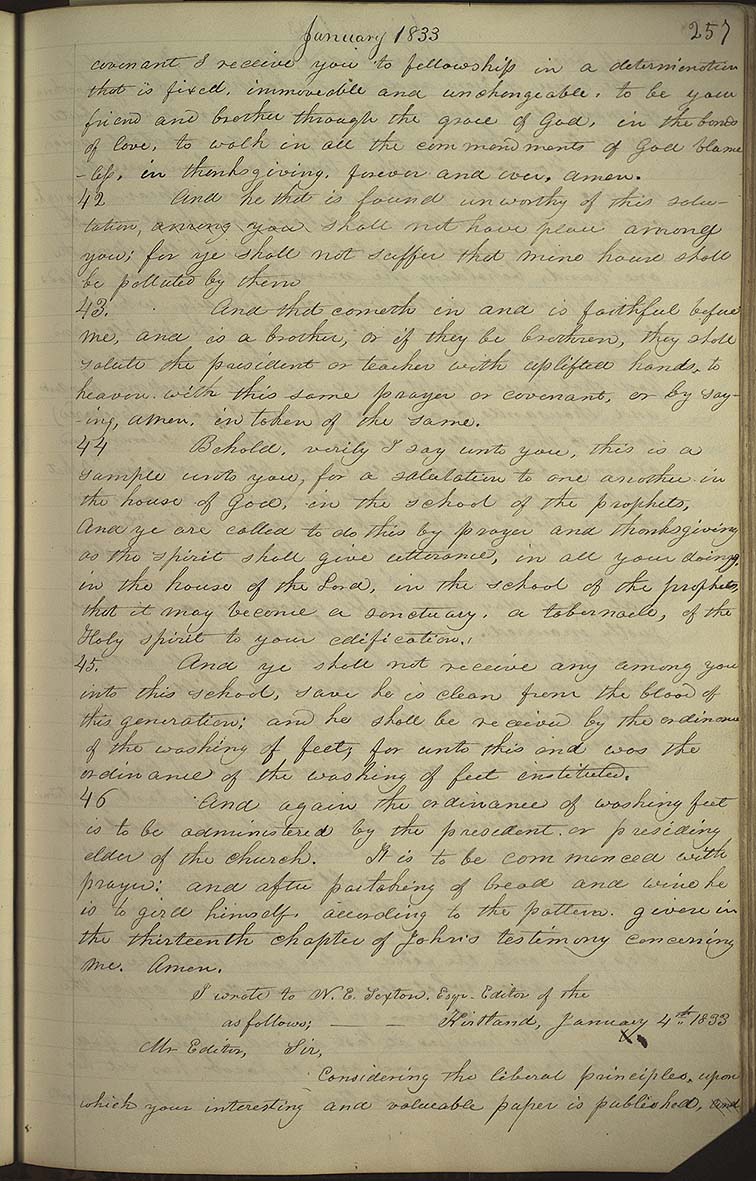 January 1833
257
covenant I receive you to fellowship in a determination
that is fixed, immoveable and unchangeable, to be your
friend and brother through the grace of God, in the bonds
of love, to walk in all the commandments of God blame
-less, in thanksgiving, forever and ever, amen.
42 And he that is found unworthy of this salu-
tation, among you shall not have place among
you; for ye shall not suffer that mine house shall
be polluted by them
43. And that cometh in and is faithful before
me, and is a brother, or if they be brethren, they shall
salute the president or teacher with uplifted hands, to
heaven with this same prayer or covenant, or by say-
-ing, amen, in token of the same.
44 Behold, verily I say unto you, this is a
sample unto you, for a salutation to one another in
the house of God, in the school of the prophets,
And ye are called to do this by prayer and thanksgiving
as the spirit shall give utterance, in all your doings,
in the house of the Lord, in the school of the prophets,
that it may become a sanctuary, a tabernacle, of the
Holy spirit to your edification.
45. And ye shall not receive any among you
into this school, save he is clean from the blood of
this generation; and he shall be received by the ordinance
of the washing of feet; for unto this end was the
ordinance of the washing of feet instituted.
46 And again the ordinance of washing feet
is to be administered by the president, or presiding
elder of the church. It is to be commenced with
prayer; and after partaking of bread and wine he
is to gird himself, according to the pattern given in
the thirteenth chapter of John's testimony concerning
me. Amen.
I wrote to N. E. Sexton, Esqr. Editor of the
as follows; — — Kirtland, January 4th 1833
Mr Editor, Sir,
Considering the liberal principles, upon
which your interesting and valueable paper is published, and